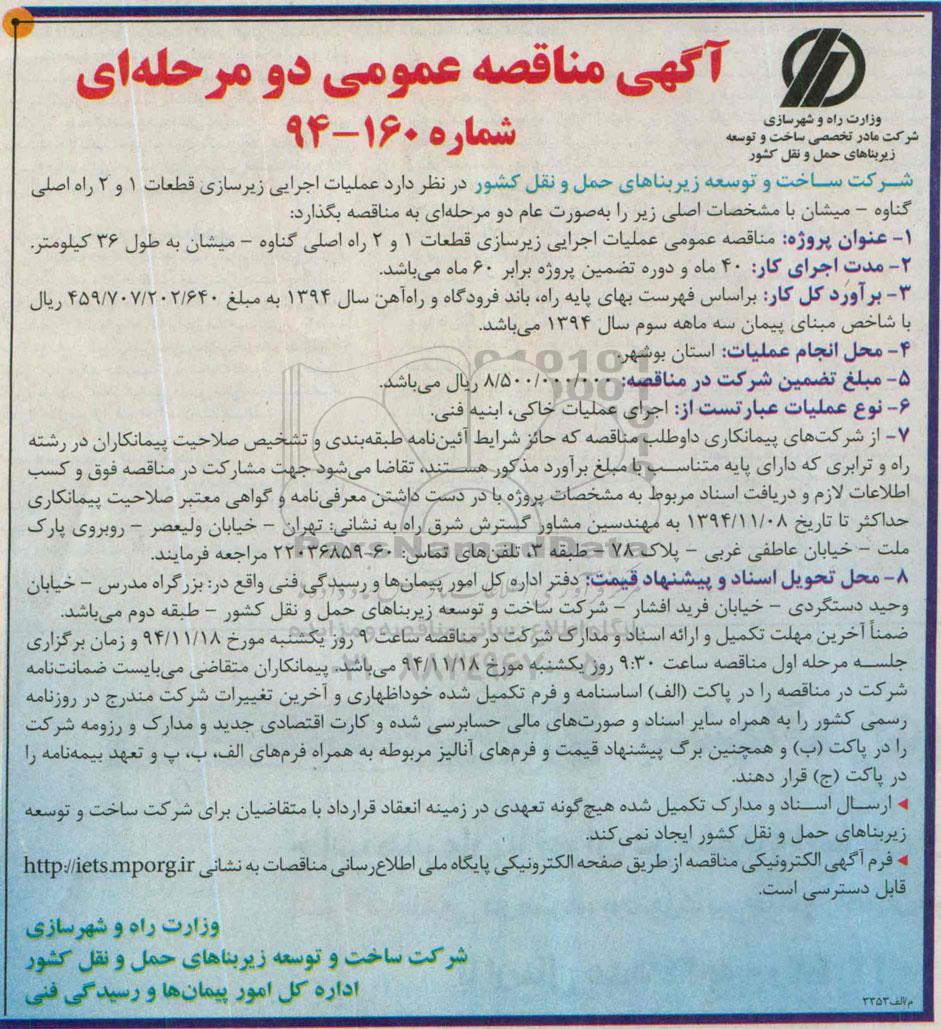 آگهی مناقصه عمومی دو مرحله‌ای
شماره ۱۶۰-۹۴
وزارت راه و شهرسازی
شرکت مادر تخصصی ساخت و توسعه
زیربناهای حمل و نقل کشور
شرکت ساخت و توسعه زیربناهای حمل و نقل کشور در نظر دارد عملیات اجرایی زیرسازی قطعات ۱ و ۲ راه اصلی
گناوه - میشان با مشخصات اصلی زیر را به‌صورت عام دو مرحله‌ای به مناقصه بگذارد:
۱- عنوان پروژه: مناقصه عمومی عملیات اجرایی زیرسازی قطعات ۱ و ۲ راه اصلی گناوه - میشان به طول ۳۶ کیلومتر.
۲- مدت اجرای کار: ۴۰ ماه و دوره تضمین پروژه برابر ۶۰ ماه می‌باشد.
۳- برآورد کل کار: براساس فهرست بهای پایه راه، باند فرودگاه و راه‌آهن سال ۱۳۹۴ به مبلغ ۴۵۹/۷۰۷/۲۰۲/۶۴۰ ریال
با شاخص مبنای پیمان سه ماهه سوم سال ۱۳۹۴ می‌باشد.
۴- محل انجام عملیات: استان بوشهر.
۵- مبلغ تضمین شرکت در مناقصه: ۸/۵۰۰/۰۰۰/۰۰۰ ریال می‌باشد.
۶- نوع عملیات عبارتست از: اجرای عملیات خاکی، ابنیه فنی.
۷- از شرکت‌های پیمانکاری داوطلب مناقصه که حائز شرایط آئین‌نامه طبقه‌بندی و تشخیص صلاحیت پیمانکاران در رشته
راه و ترابری که دارای پایه متناسب با مبلغ برآورد مذکور هستند، تقاضا می‌شود جهت مشارکت در مناقصه فوق و کسب
اطلاعات لازم و دریافت اسناد مربوط به مشخصات پروژه با در دست داشتن معرفی‌نامه و گواهی معتبر صلاحیت پیمانکاری
حداکثر تا تاریخ ۱۳۹۴/۱۱/۰۸ به مهندسین مشاور گسترش شرق راه به نشانی: تهران - خیابان ولیعصر - روبروی پارک
ملت - خیابان عاطفی غربی - پلاک ۷۸ - طبقه ۳، تلفن‌های تماس: ۶۰-۲۲۰۳۶۸۵۹ مراجعه فرمایند.
۸- محل تحویل اسناد و پیشنهاد قیمت: دفتر اداره کل امور پیمان‌ها و رسیدگی فنی واقع در: بزرگراه مدرس - خیابان
وحید دستگردی - خیابان فرید افشار - شرکت ساخت و توسعه زیربناهای حمل و نقل کشور - طبقه دوم می‌باشد.
ضمناً آخرین مهلت تکمیل و ارائه اسناد و مدارک شرکت در مناقصه ساعت ۹ روز یکشنبه مورخ ۹۴/۱۱/۱۸ و زمان برگزاری
جلسه مرحله اول مناقصه ساعت ۹:۳۰ روز یکشنبه مورخ ۹۴/۱۱/۱۸ می‌باشد. پیمانکاران متقاضی می‌بایست ضمانت‌نامه
شرکت در مناقصه را در پاکت (الف) اساسنامه و فرم تکمیل شده خوداظهاری و آخرین تغییرات شرکت مندرج در روزنامه
رسمی کشور را به همراه سایر اسناد و صورت‌های مالی حسابرسی شده و کارت اقتصادی جدید و مدارک و رزومه شرکت
را در پاکت (ب) و همچنین برگ پیشنهاد قیمت و فرم‌های آنالیز مربوطه به همراه فرم‌های الف، ب، پ و تعهد بیمه‌نامه را
در پاکت (ج) قرار دهند.
◄ ارسال اسناد و مدارک تکمیل شده هیچ‌گونه تعهدی در زمینه انعقاد قرارداد با متقاضیان برای شرکت ساخت و توسعه
زیربناهای حمل و نقل کشور ایجاد نمی‌کند.
◄ فرم آگهی الکترونیکی مناقصه از طریق صفحه الکترونیکی پایگاه ملی اطلاع‌رسانی مناقصات به نشانی http://iets.mporg.ir
قابل دسترسی است.
وزارت راه و شهرسازی
شرکت ساخت و توسعه زیربناهای حمل و نقل کشور
اداره کل امور پیمان‌ها و رسیدگی فنی
م/الف ۳۳۵۳
ParsNamadData